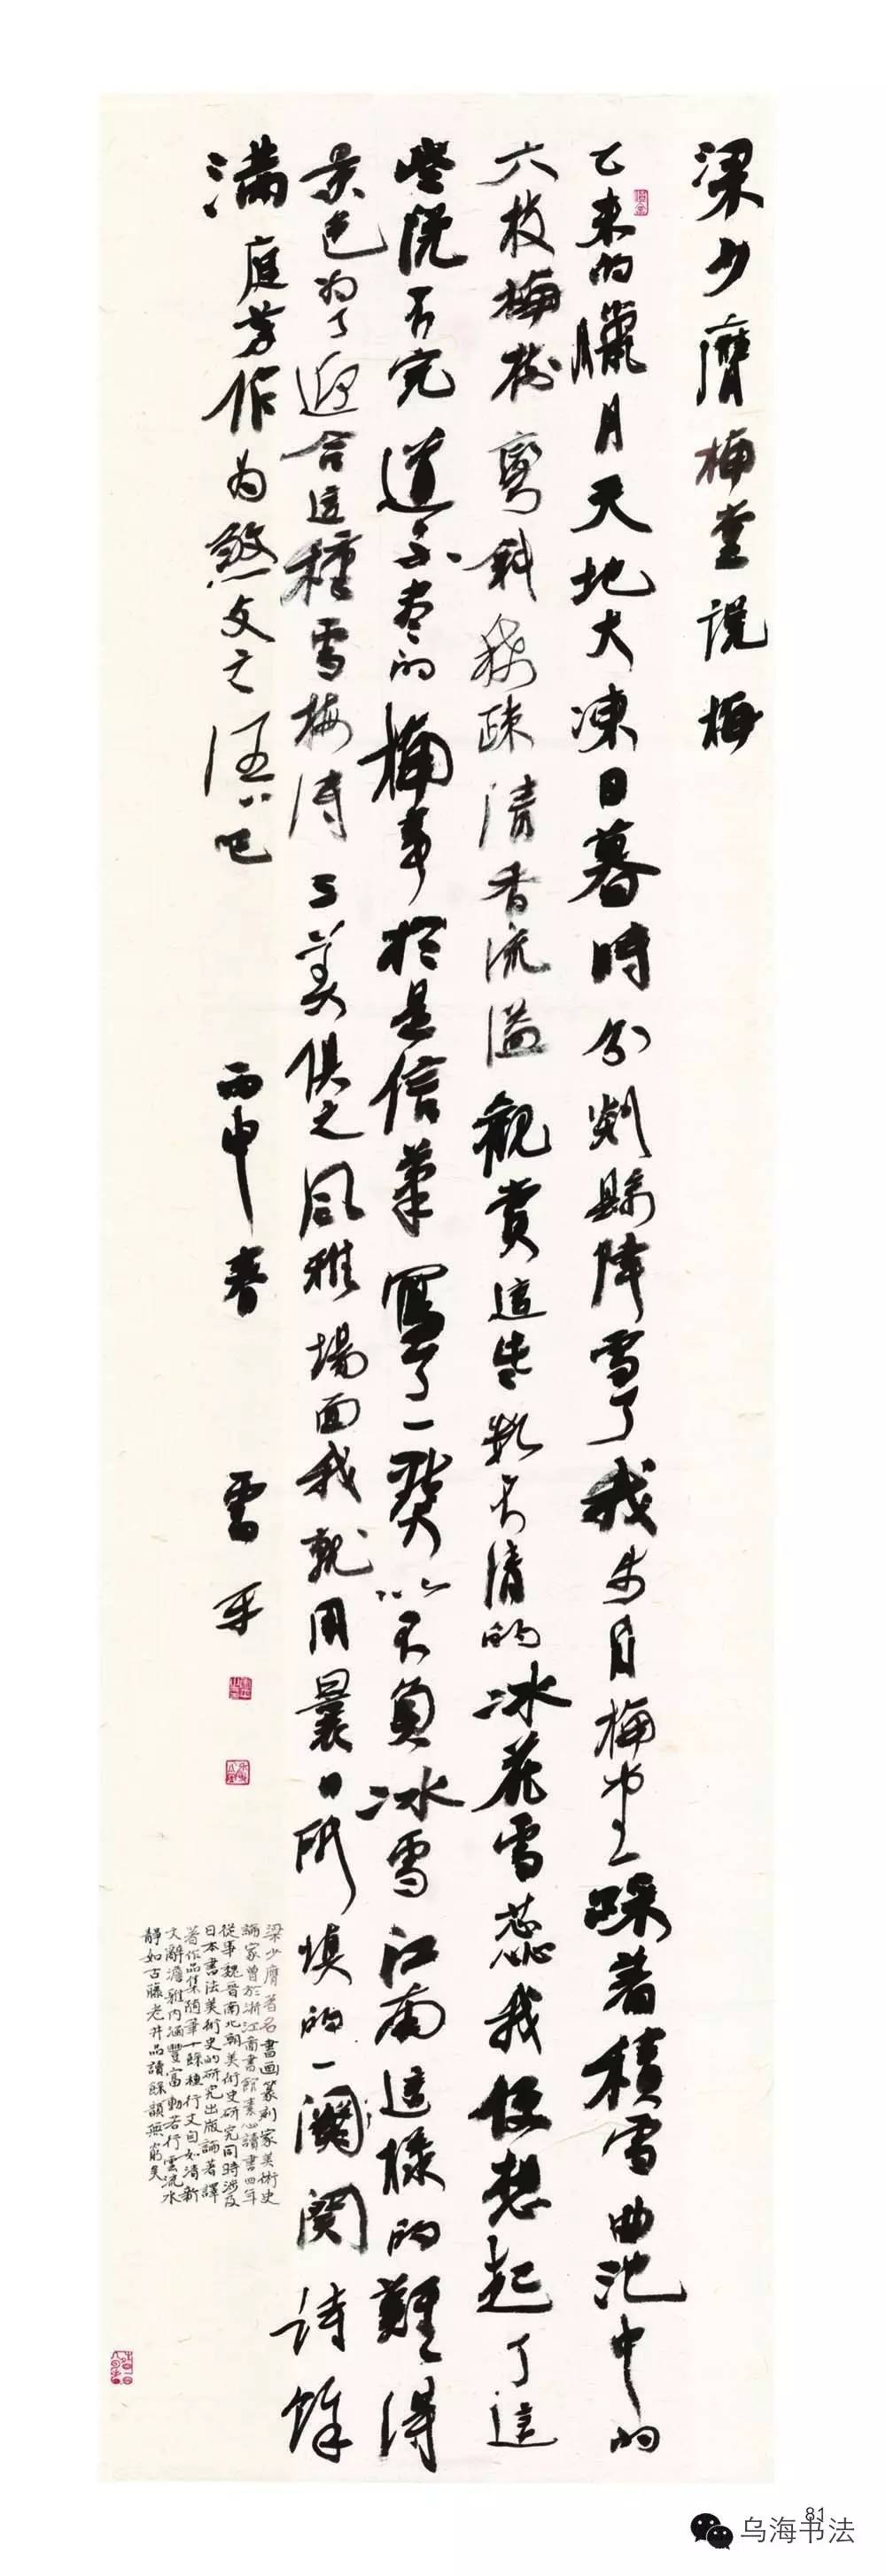 梁少膺梅堂説梅
乙未的臘月天地大凍日暮時分剡縣降雪了我步月梅堂踩著積雪曲池中的
六枝梅樹彎斜稀疎清香流溢觀賞這些數支清的冰花雪蕊我便想起了這
些説不完道不盡的梅事於是信筆寫了一冊以不負冰雪江南這樣的難得
景色為了迎合這種雪梅詩三美俱之風雅場面我就用曩日所填的一闋詩餘
滿庭芳作為煞文之語吧 丙申春 雲平
梁少膺著名書画篆刻家美術史
論家曾於浙江商書館素心讀書四年
從事魏晋南北朝美術史研究同時涉及
日本書法美術史的研究出版論著譯
著作品集隨筆十餘種行文自如清新
文辭澹雅内涵豐富動若行雲流水
靜如古藤老井品讀餘韻無窮矣
81
乌海书法